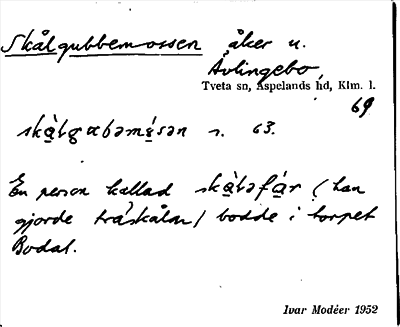 Skålgubbemossen åker u.
Ävlingebo,
Tveta sn, Aspelands hd, Klm. l.
69
skàlgɞbəmésən s. 63.
En person kallad skàləfár (han
gjorde träskålar) bodde i torpet
Bodal.
Ivar Modéer 1952